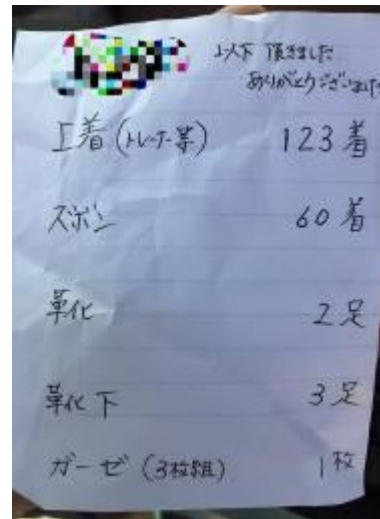 以下 頂きました
ありがとうございました
上着(トレーナー等) 123着
ズボン 60着
革化 2足
革化下 3足
ガーゼ(3枚組) 1枚